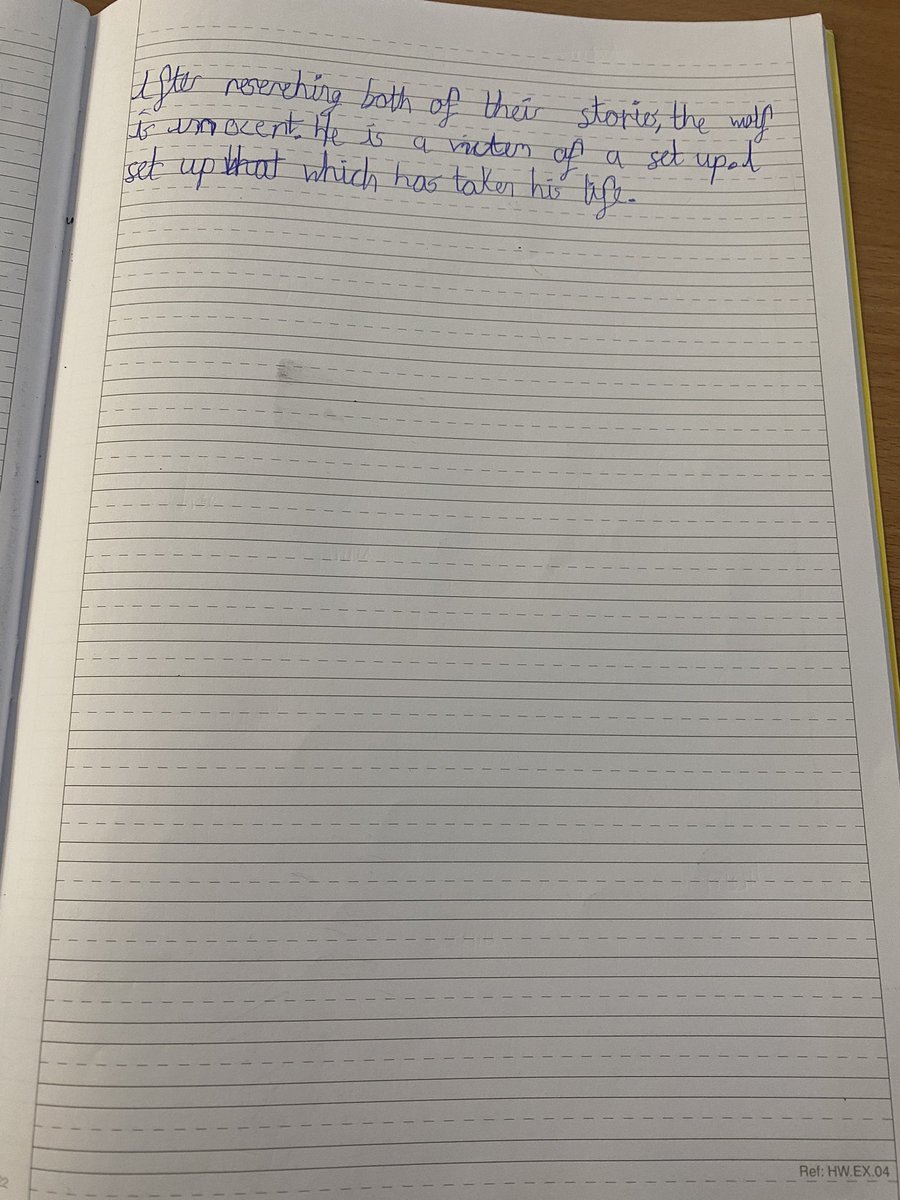 After reserching both of their stories, the wolf
is innocent. He is a victem of a set up. A
set up that which has taken his life.
Ref: HW.EX.04